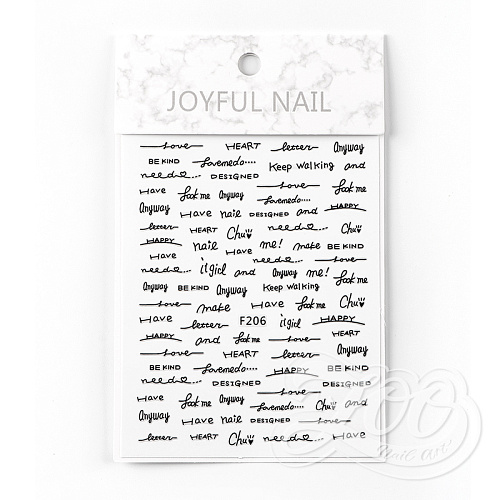 JOYFUL NAIL
Love HEART letter Anyway
BE KIND Lovemedo.... Keep Walking and
need... DESIGNED Love look me
Have look me Anyway Lovemedo....
Anyway Have nail DESIGNED and HAPPY
letter HEART Chu need... Chu
HAPPY nail Have me! make BE KIND
Have Love
need... itgirl and Anyway me! look me
Anyway BE KIND Keep Walking Have
Love make Have look me Chu
Have letter F206 itgirl HAPPY
HAPPY and look me Love HEART
Love HEART letter Anyway
BE KIND look me HAPPY BE KIND
need... DESIGNED need... DESIGNED
Have look me Anyway Lovemedo.... Chu and
Anyway Have nail DESIGNED Love
letter HEART Chu need... Have
Nail Art